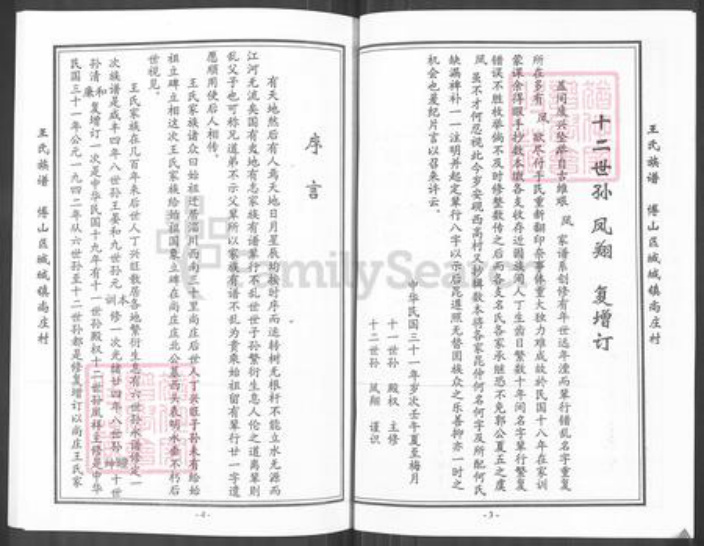 王氏族谱 博山区域城镇尚庄村
十二世孙 凤翔 复增订
盖闻废兴坠举自古维艰 凤 家谱系创修有年世远年湮而辈行错乱名字重复
所在多有 凤 欲尽付手民重新翻印奈事体重大独力难成故於民国十八年在家训
蒙课余得暇手抄数本俶各支收存近因族间人丁生齿日繁数十年间名字辈行繁复
错误不胜枚举倘不及时修整数传之后而各支名氏各家承继恐不免郭公夏五之虞
凤 虽不才何忍视此今岁安砚西高村又抄撰数本将各家昆仲何名何字及所配何氏
缺漏裨补一一注明并起定辈行八字以示后昆道照无替困族众之乐善抑亦一时之
机会也爰纪片言以召来许云。
中华民国三十一年岁次壬午夏至梅月
十一世孙 殿权 主修
十二世孙 凤翔 谨识
-3-
序言
有天地然后有人焉天地日月星辰均按时序而运转树无根杆不能立水无源而
江河无流矣国有史地有志家族有谱辈行不乱世世子孙繁衍生息人伦之道离辈则
乱父子也可称兄道弟不示父辈所以家族有谱不乱为贵乘始祖留有辈行廿一字遗
愿顺用使后人相传。
王氏家族诸众曰始祖迁居淄川西南二十里尚庄后世人丁兴旺子孙未有给始
祖立碑立相这次王氏家族给始祖国象立碑在尚庄庄北公墓西头表明永垂不朽后
世视见。
王氏家族在几百年来后世人丁兴旺散居各地繁衍生息有六世孙永谱修定一
次族谱是咸丰四年八世孙王晏和九世孙元训本修一次光绪廿四年八世孙坤 十世
孙清和廉复增订一次是中华民国十九年有十一世孙殿权十二世孙凤祥主修是中华
民国三十一年公元一九四二年从六世孙至十二世孙都是修复增订以尚庄王氏家
-4-
王氏族谱 博山区域城镇尚庄村
FamilySearch